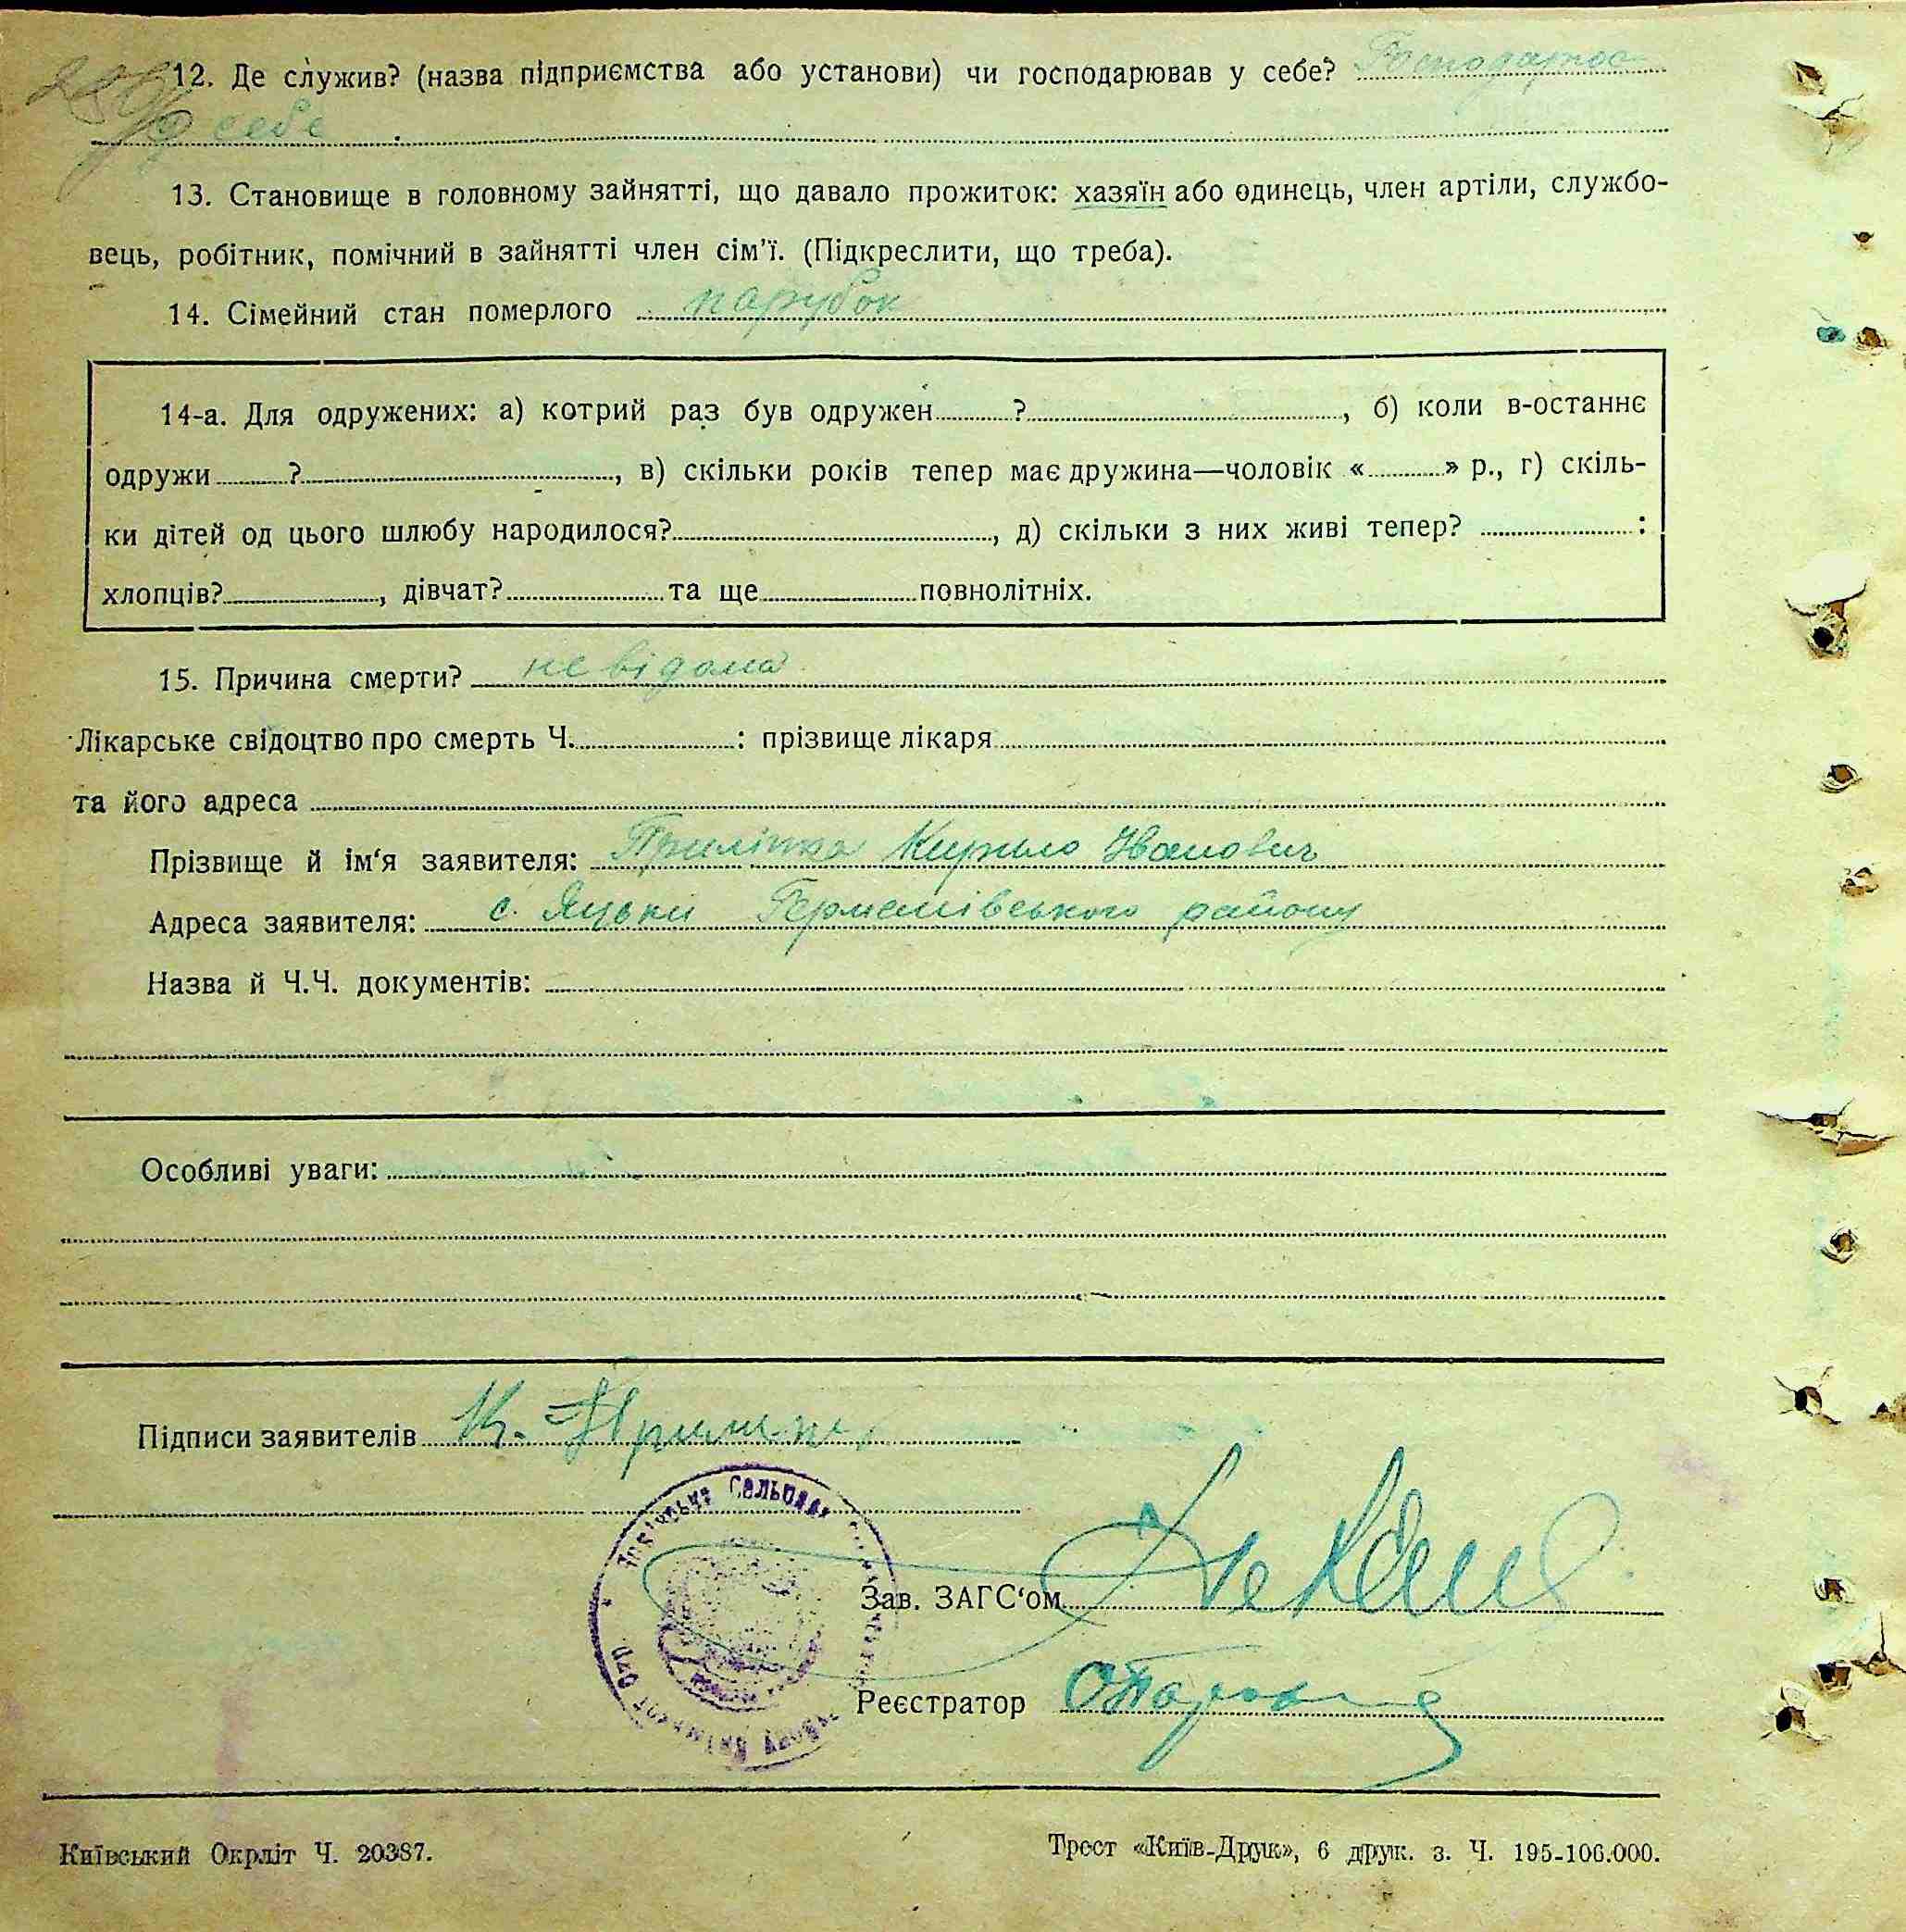 12. Де служив? (назва підприємства або установи) чи господарював у себе? Господарює
у себе
13. Становище в головному зайнятті, що давало прожиток: хазяїн або одинець, член артіли, службо-
вець, робітник, помічний в зайнятті член сім'ї. (Підкреслити, що треба).
14. Сімейний стан померлого парубок
14-а. Для одружених: а) котрий раз був одружен ? , б) коли в-останнє
одружи ? , в) скільки років тепер має дружина—чоловік « » р., г) скіль-
ки дітей од цього шлюбу народилося? , д) скільки з них живі тепер? :
хлопців? , дівчат? та ще повнолітніх.
15. Причина смерти? невідома
Лікарське свідоцтво про смерть Ч. : прізвище лікаря
та його адреса
Прізвище й ім'я заявителя: Прилітка Кирило Іванович
Адреса заявителя: с. Яцьки Германівського району
Назва й Ч.Ч. документів:
Особливі уваги:
Підписи заявителів К.
Зав. ЗАГС'ом
Реєстратор
Київський Окрліт Ч. 20387.
Трест «Київ-Друк», 6 друк. з. Ч. 195-106.000.